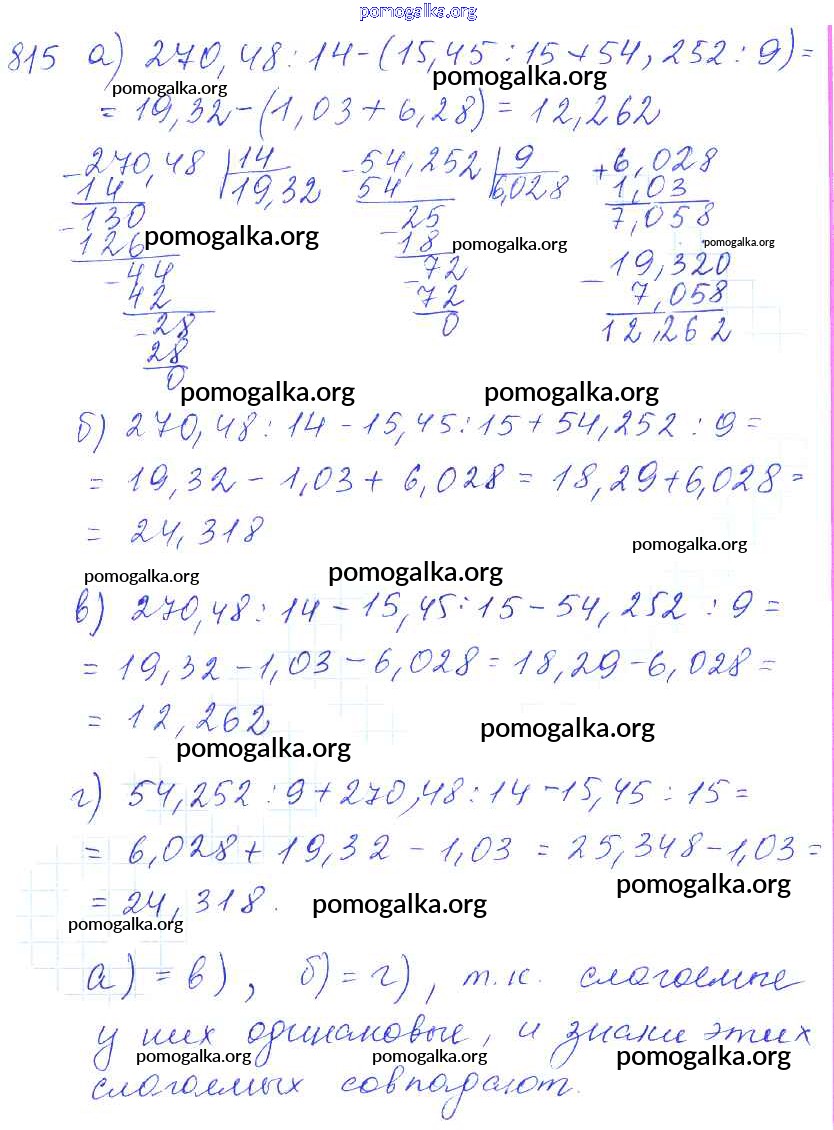 pomogalka.org
815 а) 270,48 : 14 - (15,45 : 15 + 54,252 : 9) =
pomogalka.org pomogalka.org
= 19,32 - (1,03 + 6,28) = 12,262
- 270,48 | 14 - 54,252 | 9 + 6,028
14 19,32 54 6,028 1,03
- 130 - 25 7,058
126 pomogalka.org 18 pomogalka.org pomogalka.org
- 44 - 72 - 19,320
42 72 7,058
- 28 0 12,262
28
0
pomogalka.org pomogalka.org
б) 270,48 : 14 - 15,45 : 15 + 54,252 : 9 =
= 19,32 - 1,03 + 6,028 = 18,29 + 6,028 =
= 24,318
pomogalka.org
pomogalka.org pomogalka.org
в) 270,48 : 14 - 15,45 : 15 - 54,252 : 9 =
= 19,32 - 1,03 - 6,028 = 18,29 - 6,028 =
= 12,262
pomogalka.org pomogalka.org
г) 54,252 : 9 + 270,48 : 14 - 15,45 : 15 =
= 6,028 + 19,32 - 1,03 = 25,348 - 1,03 =
= 24,318.
pomogalka.org pomogalka.org pomogalka.org
а) = в), б) = г), т.к. слагаемые
у них одинаковые, и знаки этих
pomogalka.org pomogalka.org pomogalka.org
слагаемых совпадают.